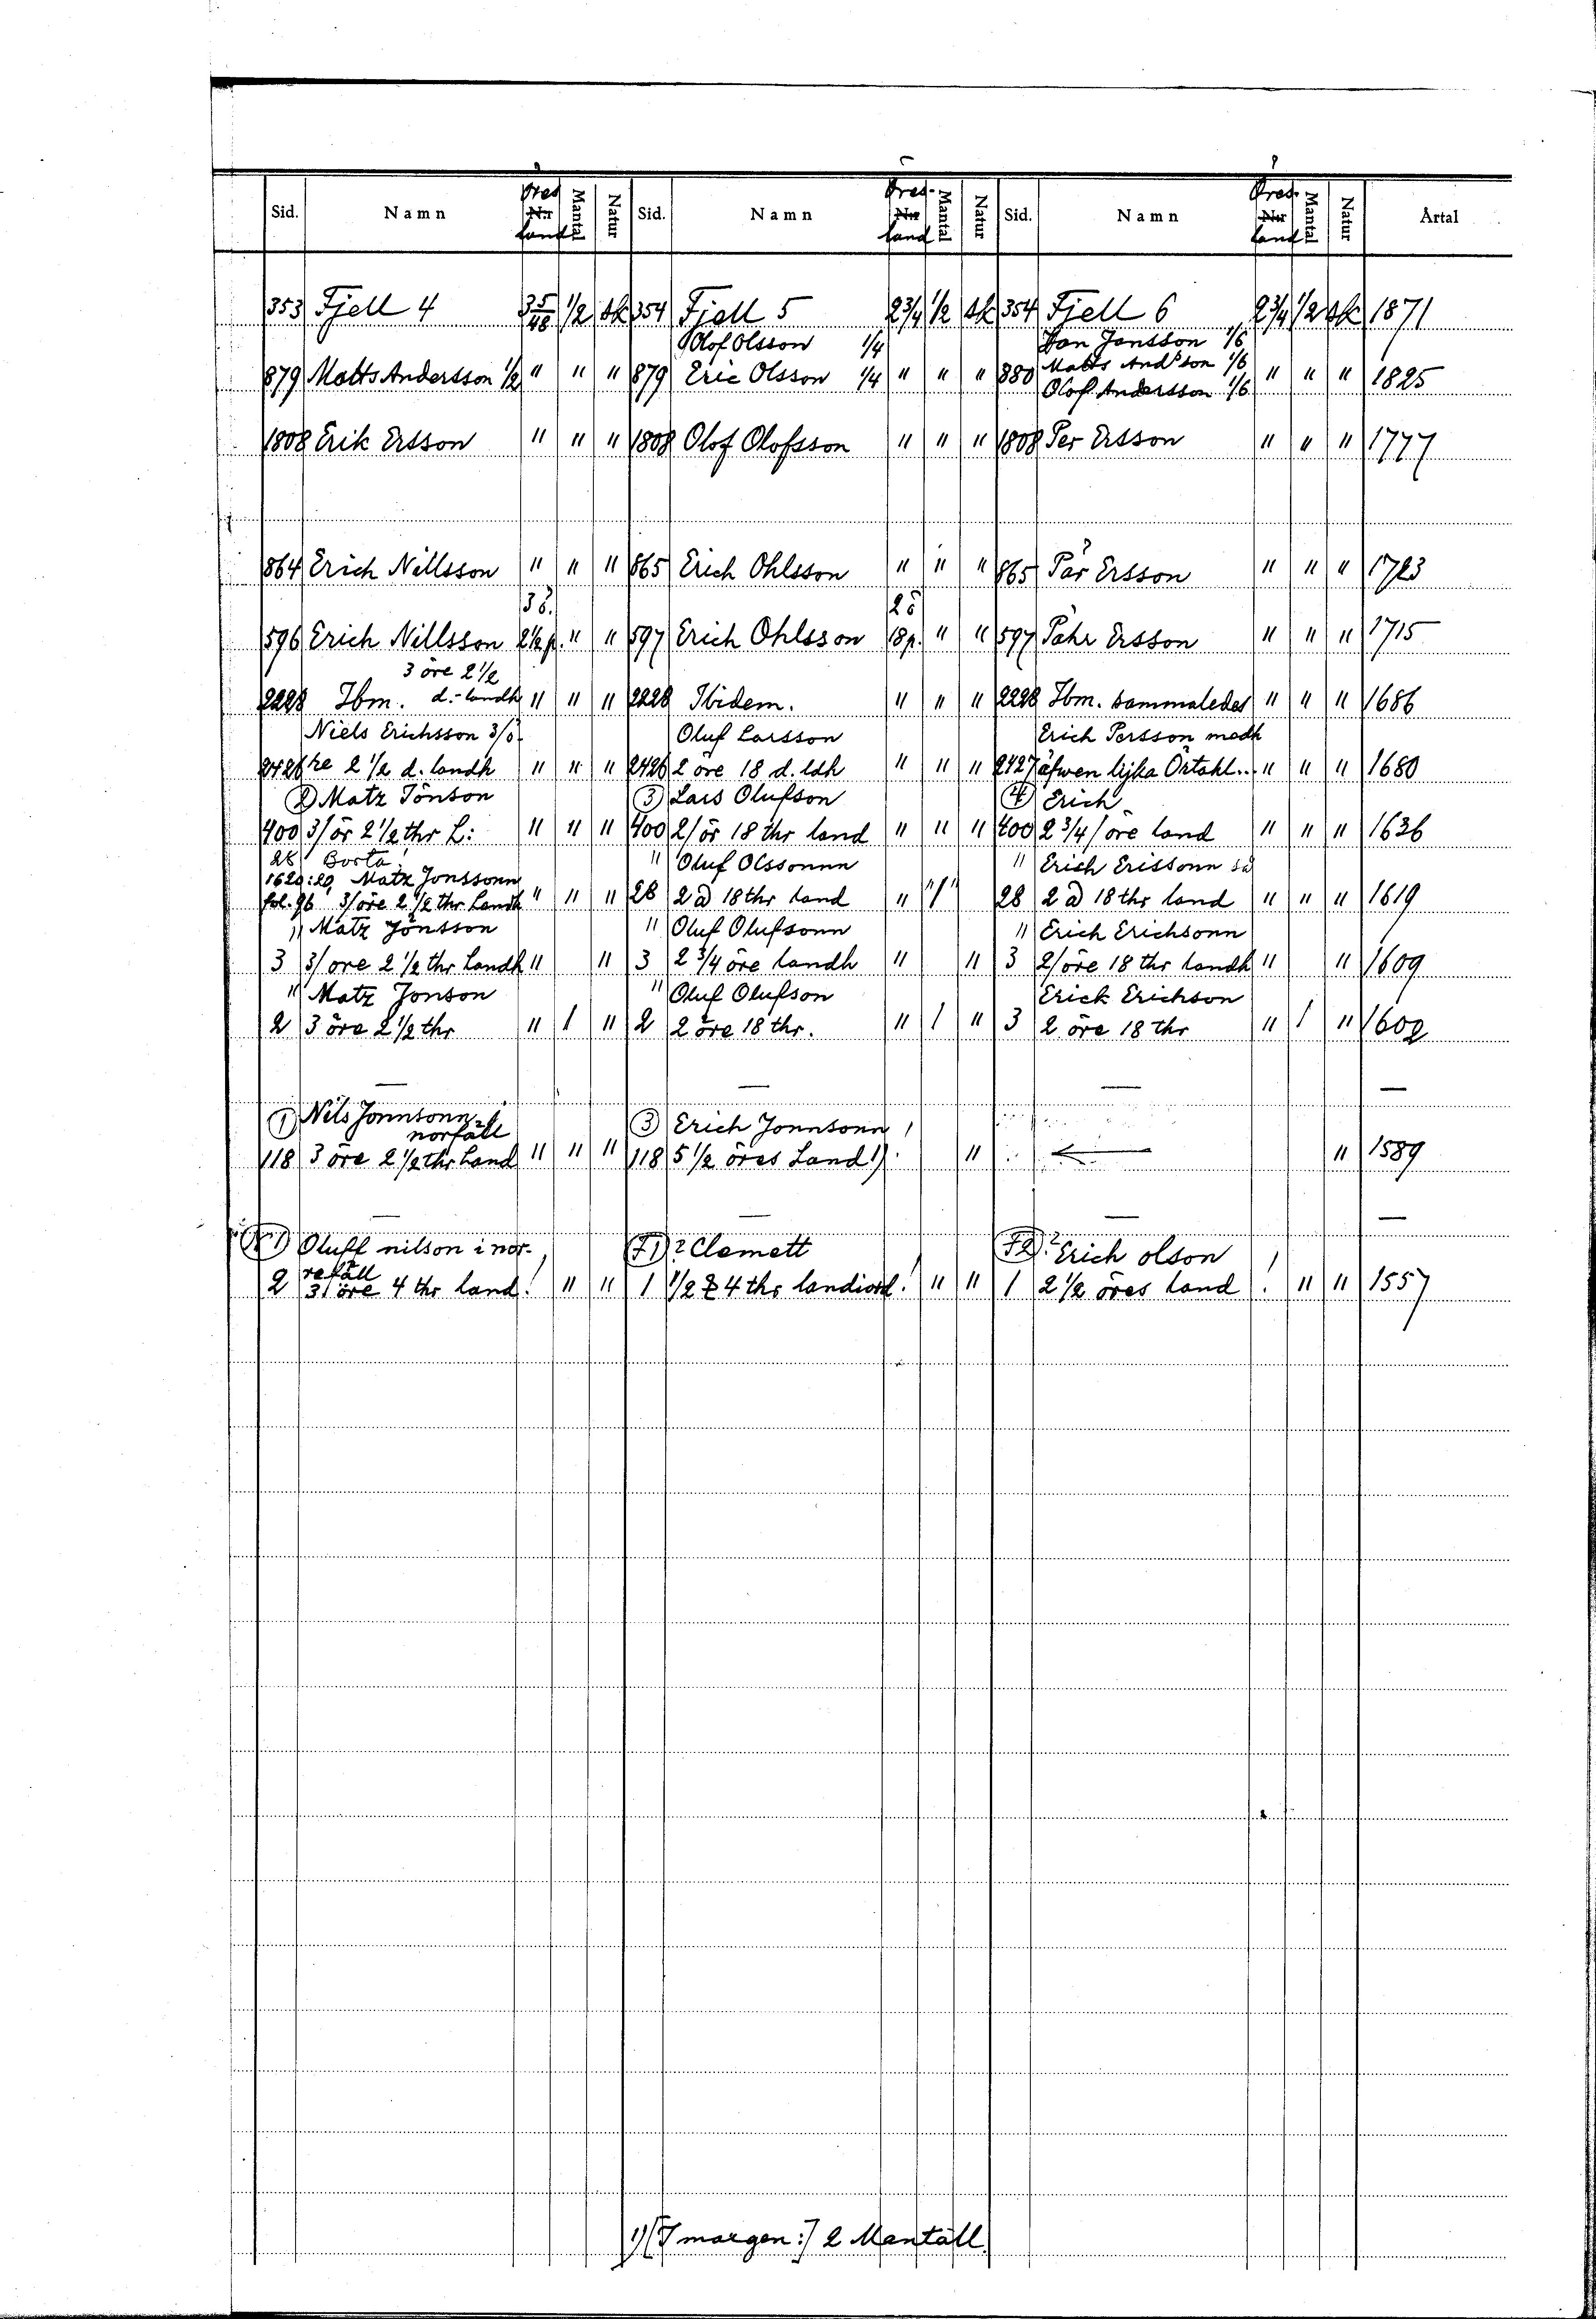 Sid. Namn Öres Nr land Mantal Natur Sid. Namn Öres- Nr land Mantal Natur Sid. Namn Öres- Nr land Mantal Natur Årtal
353 Fjell 4 3 5/48 1/2 sk 354 Fjell 5 2 3/4 1/2 sk 354 Fjell 6 2 3/4 1/2 sk 1871
Olof Olsson 1/4 Jan Jansson 1/6
879 Matts Andersson 1/2 " " " 879 Eric Olsson 1/4 " " " 880 Matts And'son 1/6 " " " 1825
Olof Andersson 1/6
1808 Erik Ersson " " " 1808 Olof Olofsson " " " 1808 Per Ersson " " " 1777
864 Erich Nillsson " " " 865 Erich Ohlsson " " " 865 Pär Ersson " " " 1723
3 ö. 2 ö
596 Erich Nillsson 2 1/2 p. " " 597 Erich Ohlsson 18 p. " " 597 Pähr Ersson " " " 1715
3 öre 2 1/2
2228 Ibm. d:- landh " " " 2228 Ibidem. " " " 2228 Ibm. sammaledes " " " 1686
Niels Erichsson 3/ö Oluf Larsson Erich Persson medh
2426 re 2 1/2 d. landh " " " 2426 2 öre 18 d. ldh " " " 2427 äfwen lijka Örtahl... " " " 1680
2) Matz Jönson 3) Lars Olufson 4) Erich
400 3/ör 2 1/2 thr L: " " " 400 2/ör 18 thr land " " " 400 2 3/4/öre land " " " 1636
28 Borta " Oluf Olssonnn " Erich Erissonn
1620:20 Matz Jonssonn
fol. 96 3/öre 2 1/2 thr Landh " " " 28 2 18 thr land " "1" 28 2 18 thr land " " " 1619
" Matz Jönsson " Oluf Olufsonn " Erich Erichsonn
3 3/ore 2 1/2 thr Landh " " 3 2 3/4 öre landh " " 3 2/öre 18 thr landh " " 1609
" Matz Jonson " Oluf Olufson Erick Erichson
2 3 öre 2 1/2 thr " 1 " 2 2 öre 18 thr. " 1 " 3 2 öre 18 thr " 1 " 1602
— — — —
1) Nils Jonnsonn 3) Erich Jonnsonn
norfäll
118 3 öre 2 1/2 thr Land " " " 118 5 1/2 öres Land 1) " " 1589
— — — —
1) Oluff nilson i nor- 1)? Clemett 2)? Erich olson
refäll
2 3/öre 4 thr land ! " " 1 1/2 4 thr landiord ! " " 1 2 1/2 öres land ! " " 1557
1) [I margen:] 2 Mantall